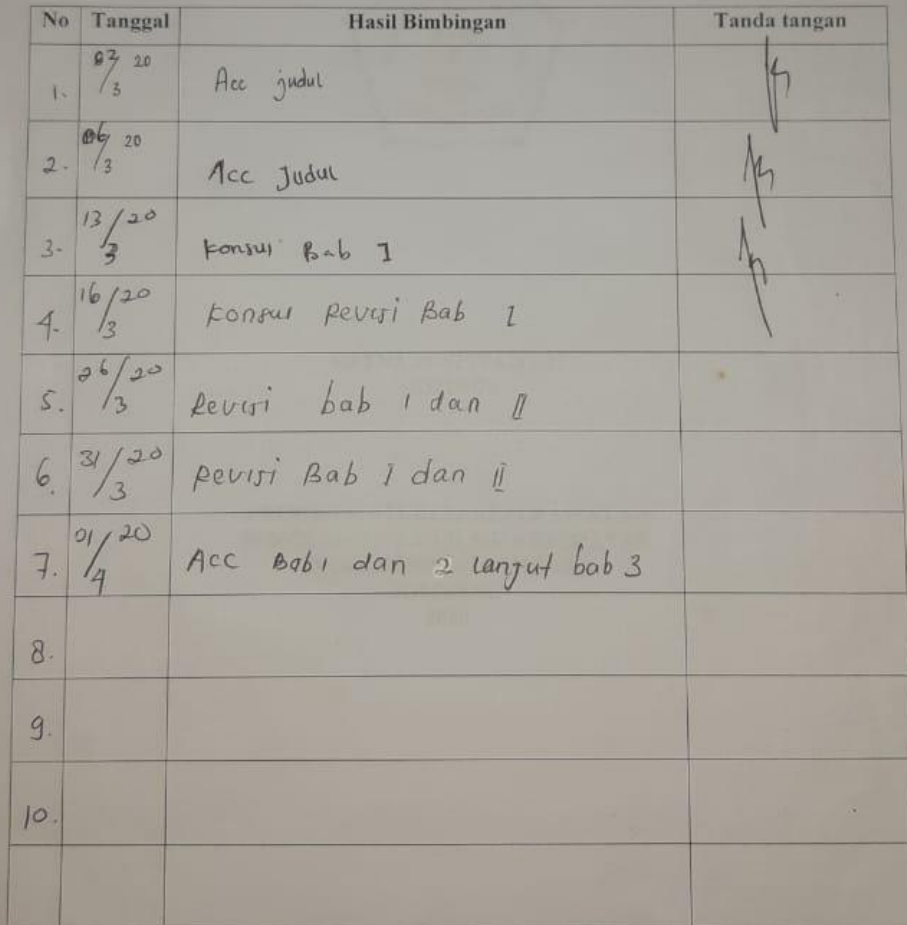 No Tanggal Hasil Bimbingan Tanda tangan
1. 02/3 20 Acc judul
2. 06/3 20 Acc Judul
3. 13/3 20 Konsul Bab I
4. 16/3 20 Konsul Revisi Bab I
5. 26/3 20 Revisi bab I dan II
6. 31/3 20 Revisi Bab I dan II
7. 01/4 20 Acc Bab 1 dan 2 lanjut bab 3
8.
9.
10.